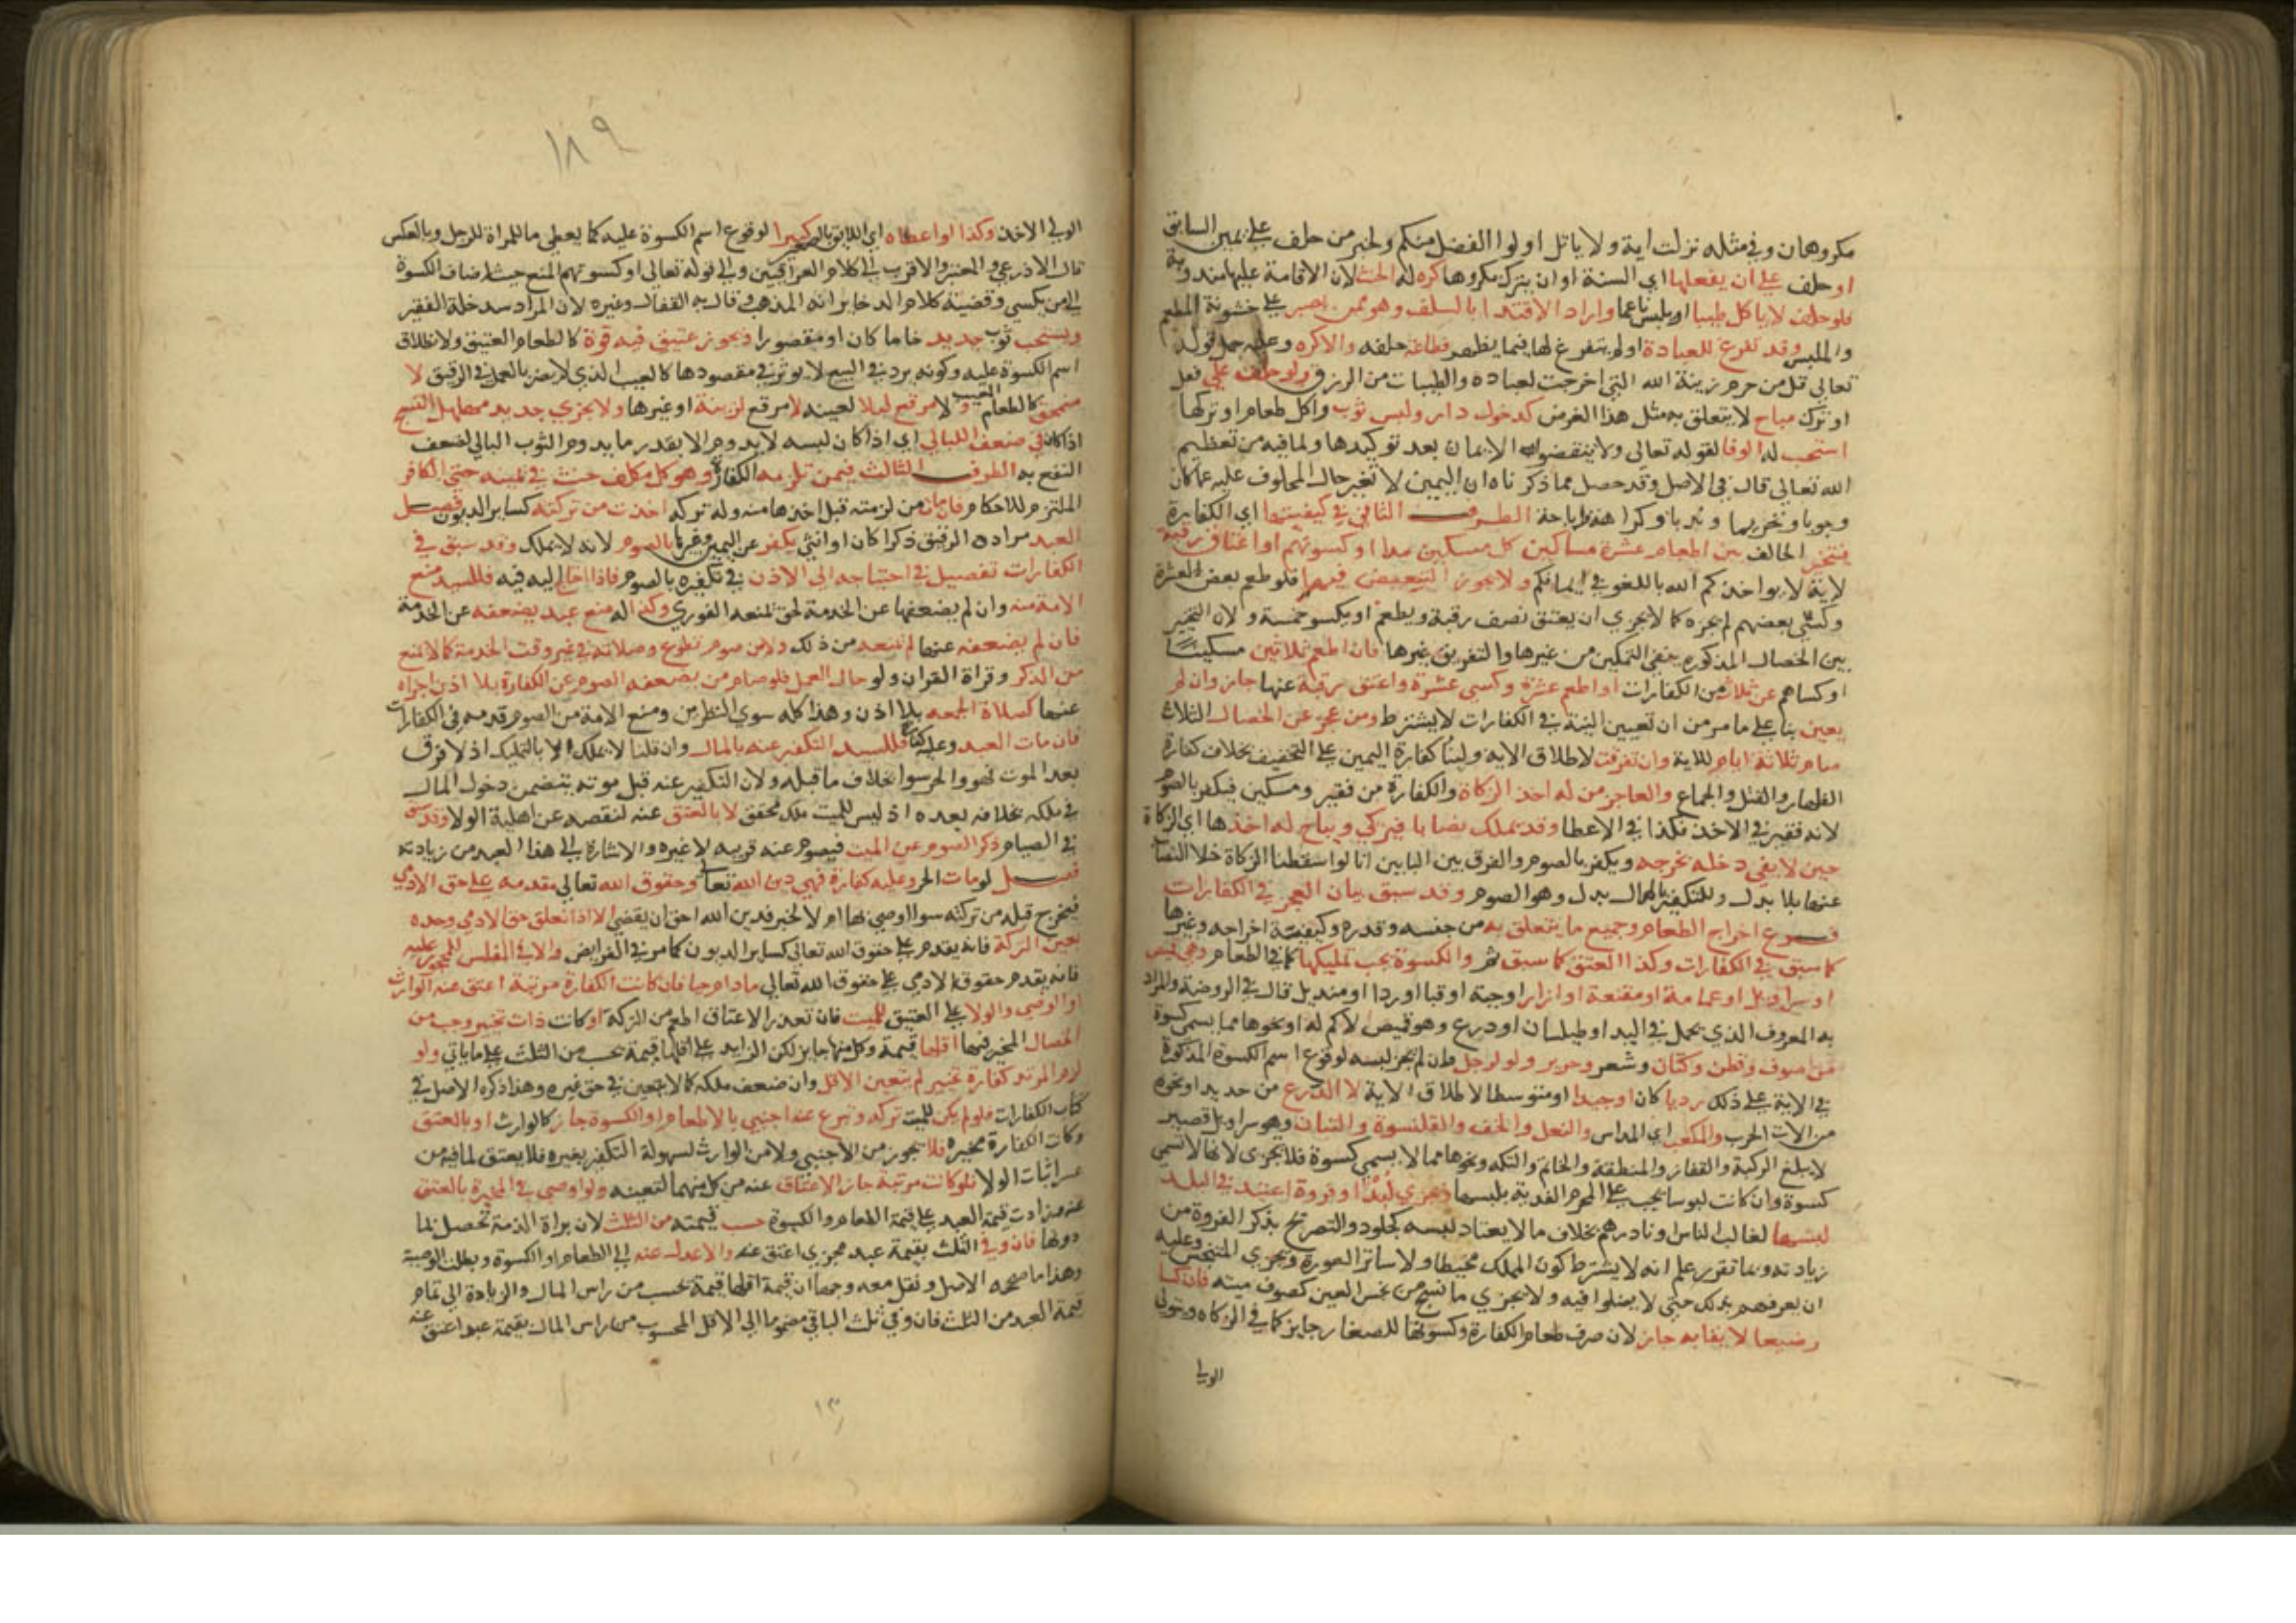 مكروهان وفي مثله نزلت اية ولا ياتل اولوا الفضل منكم ولخبر من حلف على يمين السابق
او حلف على ان يفعلها اي السنة او ان يترك مكروها كره له الحنث لان الاقامة عليها مندوبة
فلو حلف لا ياكل طيبا او يلبس ناعما واراد الاقتدا بالسلف وهو ممن يصبر على خشونة المطعم
والملبس وقد تفرغ للعبادة او لم يتفرغ لها فيما يظهر فطاعة حلفه والا كره وعليه حمل قوله
تعالى قل من حرم زينة الله التي اخرج لعباده والطيبات من الرزق ولو حلف على فعل
او ترك مباح لا يتعلق به مثل هذا الغرض كدخول دار ولبس ثوب واكل طعام او تركها
استحب له الوفا لقوله تعالى ولا تنقضوا الايمان بعد توكيدها ولما فيه من تعظيم
الله تعالى قال في الاصل وقد حصل مما ذكرناه ان اليمين لا تغير حال المحلوف عليه عما كان
وجوبا وتحريما وندبا وكراهة واباحة الطرف الثاني في كيفيتها اي الكفارة
فيتخير الحالف بين اطعام عشرة مساكين كل مسكين مدا او كسوتهم او اعتاق رقبة
لاية لا يواخذكم الله باللغو في ايمانكم ولا يجوز التبعيض فيها فلو طعم بعض العشرة
وكسى بعضهم لم يجزه كما لا يجزي ان يعتق نصف رقبة ويطعم او يكسو خمسة ولان التخيير
بين الخصال المذكورة ينفي التمكين من غيرها والتفريق غيرها فان اطعم ثلاثين مسكينا
او كساهم عن ثلاث من الكفارات او اطعم عشرة وكسى عشرة واعتق رقبة عنها جاز وان لم
يعين بنا على ما مر من ان تعيين النية في الكفارات لا يشترط ومن عجز عن الخصال الثلاث
صام ثلاثة ايام للاية وان تفرقت لاطلاق الاية ولبنا كفارة اليمين على التخفيف بخلاف كفارة
الظهار والقتل والجماع والعاجز من له اخذ الزكاة والكفارة من فقير ومسكين فيكفر بالصوم
لانه فقير في الاخذ فكذا في الاعطا وقد يملك نصابا فيزكي ويباح له اخذها اي الزكاة
حين لا يفي دخله بخرجه ويكفر بالصوم والفرق بين البابين انا لو اسقطنا الزكاة خلا النصاب
عنها بلا بدل وللتكفير بالمال بدل وهو الصوم وقد سبق بيان العجز في الكفارات
فرع اخراج الطعام وجميع ما يتعلق به من جنسه وقدره وكيفية اخراجه وغيرها
كما سبق في الكفارات وكذا العتق كما سبق ثم والكسوة يجب تمليكها كما في الطعام وهي قميص
او سراويل او عمامة او مقنعة او ازار او جبة او قبا او ردا او منديل قال في الروضة والمراد
به المعروف الذي يحمل في اليد او طيلسان او درع وهو قميص لا كم له او نحوها مما يسمى كسوة
من صوف وقطن وكتان وشعر وحرير ولو لرجل وان لم يجز لبسه لوقوع اسم الكسوة المذكورة
في الاية على ذلك رديا كان او جيدا او متوسطا لاطلاق الاية لا الدرع من حديد او نحوه
من الات الحرب والمكعب اي المداس والنعل والخف والقلنسوة والتبان وهو سراويل قصير
لا يبلغ الركبة والقفاز والمنطقة والخاتم والتكة ونحوها مما لا يسمى كسوة فلا يجزى لانها لا تسمى
كسوة وان كانت لبوسا يجب على المحرم الفدية بلبسها ويجزي لبد او فروة اعتيد في البلد
لبسهما لغالب الناس او نادرهم بخلاف ما لا يعتاد لبسه كجلود والتصريح بذكر الفروة من
زيادته ومما تقرر علم انه لا يشترط كون المملك مخيطا ولا ساتر العورة ويجزي المتنجس وعليه
ان يعرفهم بذلك حتى لا يصلوا فيه ولا يجزي ما نسج من نجس العين كصوف ميتة فان كسا
رضيعا لا يفا به جاز لان صرف طعام الكفارة وكسوتها للصغار جايز كما في الزكاه ويتولى
الولي
١٨٩
الولي الاخذ وكذا لو اعطاه اي اللايق بالصغير كبيرا لوقوع اسم الكسوة عليه كما يعطى ما للمراة للرجل وبالعكس
قال الاذرعي والمعتبر والاقرب الى كلام العراقيين والى قوله تعالى او كسوتهم المنع حيث اضاف الكسوة
الى من يكسي وقضية كلام الدخاير انه المذهب وقال به القفال وغيره لان المراد سد خلة الفقير
ويستحب ثوب جديد خاما كان او مقصورا ويجوز عتيق فيه قوة كالطعام العتيق ولانطلاق
اسم الكسوة عليه وكونه يرد في البيع لا يوثر في مقصودها كالعيب الذي لا يضر بالعمل في الرقيق لا
منمحق كالطعام المعيب ولا مرقع لبلا لعيبه لا مرقع لزينة او غيرها ولا يجزي جديد مهلهل النسج
اذا كان في ضعف البالي اي اذا كان لبسه لا يدوم الا بقدر ما يدوم الثوب البالي لضعف
النفع به الطرف الثالث فيمن تلزمه الكفارة وهو كل مكلف حنث في يمينه حتى الكافر
الملتزم للاحكام فان مات من لزمته قبل اخذها منه وله تركه اخذت من تركته كساير الديون فصل
العبد مراده الرقيق ذكرا كان او انثى يكفر عن اليمين وغيرها بالصوم لانه لا يملك وقد سبق في
الكفارات تفصيل في احتياجه الى الاذن في تكفيره بالصوم فاذا احتاج اليه فيه فللسيد منع
الامة منه وان لم يضعفها عن الخدمة لحق تمتعه الفوري وكذا له منع عبد يضعفه عن الخدمة
فان لم يضعفه عنها لم يمنعه من ذلك ولا من صوم تطوع وصلاته في غير وقت الخدمة كما لا يمنع
من الذكر وقراة القران ولو حال العمل فلو صام من يضعفه الصوم عن الكفارة بلا اذن اجزاه
عنها كصلاة الجمعه بلا اذن وهذا كله سوى النظر من ومنع الامة من الصوم قدمه في الكفارات
فان مات العبد وعليه كفارة فللسيد التكفير عنه بالمال وان قلنا لا يملك الا بالتمليك اذ لا فرق
بعد الموت فهو والحر سوا بخلاف ما قبله ولان التكفير عنه قبل موته يتضمن دخول المال
في ملكه بخلافه بعده اذ ليس للميت ملك محقق لا بالعتق عنه لنقصه عن اهلية الولا وقد سبق
في الصيام ذكر الصوم عن الميت فيصوم عنه قريبه لا غيره والاشارة الى هذا العبد من زيادته
فصل لو مات الحر وعليه كفارة فهي دين الله تعالى وحقوق الله تعالى مقدمه على حق الادمي
فيخرج قبله من تركته سوا اوصى بها ام لا لخبر فدين الله احق ان يقضى الا اذا تعلق حق الادمي وحده
بعين التركة فانه يقدم على حقوق الله تعالى كساير الديون كما مر في الفرايض والا في المفلس المحجور عليه
فانه يقدم حقوق الادمي على حقوق الله تعالى ما دام حيا فان كانت الكفارة مرتبة اعتق عنه الوارث
او الوصي والولا على العتيق للميت فان تعذر الاعتاق اطعم من التركة او كانت ذات تخيير وجب من
الخصال المخير فيها اقلها قيمة وكل منها جايز لكن الزايد على اقلها قيمة يحسب من الثلث على ما ياتي ولو
لزم المرتد كفارة تخيير لم يتعين الاقل وان ضعف ملكه كما لا يتعين في حق غيره وهذا ذكره الاصل في
كتاب الكفارات فلو لم يكن للميت تركه وتبرع عنه اجنبي بالاطعام او الكسوة جاز كالوارث او بالعتق
وكانت الكفارة مخيره فلا يجوز من الاجنبي ولا من الوارث لسهولة التكفير بغيره فلا يعتق لما فيه من
عسر اثبات الولا فلو كانت مرتبة جاز الاعتاق عنه من كل منهما لتعينه ولو اوصى في المخيرة بالعتق
عنه فزادت قيمة العبد على قيمة الطعام والكسوة حسب قيمته من الثلث لان براة الذمة تحصل بما
دونها فان وفى الثلث بقيمة عبد مجزي اعتق عنه والا عدل عنه الى الطعام او الكسوة وبطلت الوصية
وهذا ما صححه الاصل ونقل معه وجها ان قيمة اقلها قيمة تحسب من راس المال والزيادة الى تمام
قيمة العبد من الثلث فان وفى ثلث الباقي مضموما الى الاقل المحسوب من راس المال بقيمة عبد اعتق عنه